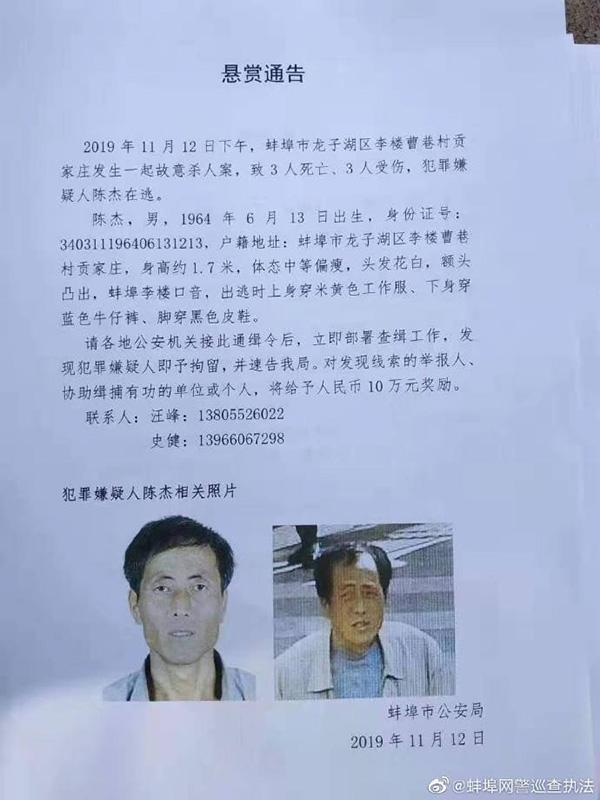 悬赏通告
2019 年 11 月 12 日下午，蚌埠市龙子湖区李楼曹巷村贡
家庄发生一起故意杀人案，致 3 人死亡、3 人受伤，犯罪嫌
疑人陈杰在逃。
陈杰，男，1964 年 6 月 13 日出生，身份证号：
340311196406131213，户籍地址：蚌埠市龙子湖区李楼曹巷
村贡家庄，身高约 1.7 米，体态中等偏瘦，头发花白，额头
凸出，蚌埠李楼口音，出逃时上身穿米黄色工作服、下身穿
蓝色牛仔裤、脚穿黑色皮鞋。
请各地公安机关接此通缉令后，立即部署查缉工作，发
现犯罪嫌疑人即予拘留，并速告我局。对发现线索的举报人、
协助缉捕有功的单位或个人，将给予人民币 10 万元奖励。
联系人：汪峰：13805526022
史健：13966067298
犯罪嫌疑人陈杰相关照片
蚌埠市公安局
2019 年 11 月 12 日
@蚌埠网警巡查执法